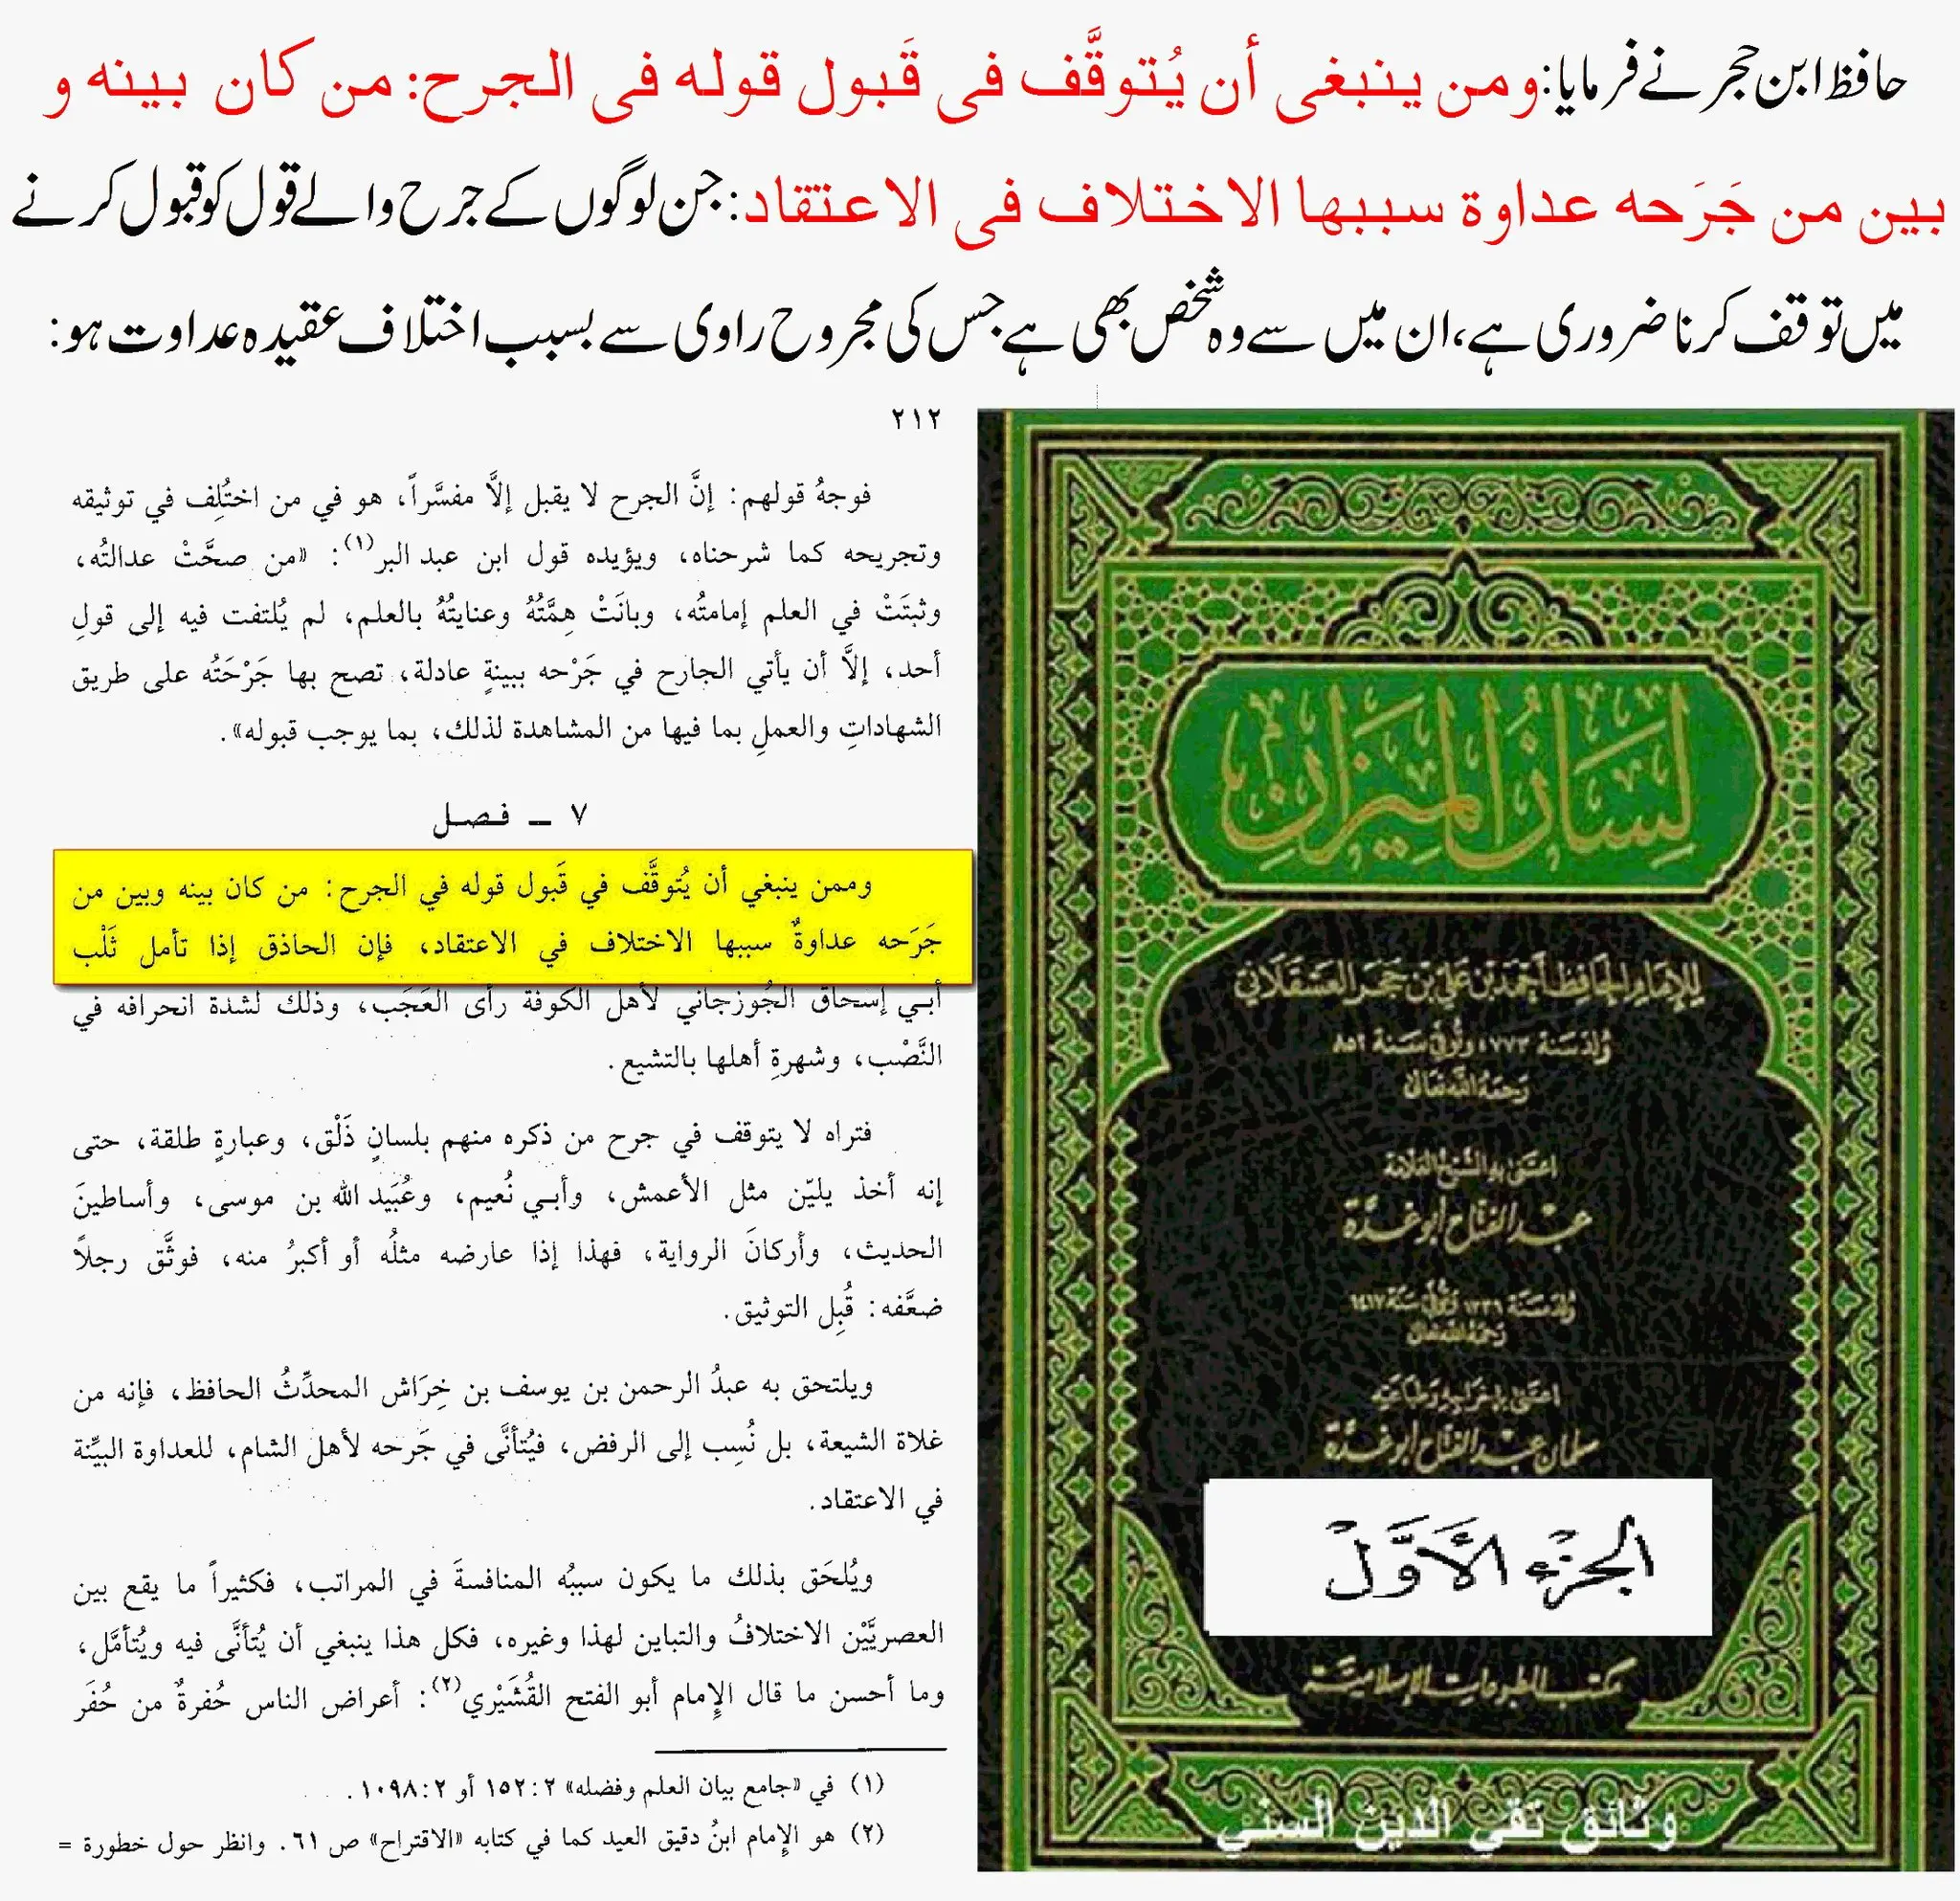 حافظ ابن حجر نے فرمایا: ومن ینبغی أن یُتوقَّف فی قَبول قوله فی الجرح: من کان بینه و
بین من جَرَحه عداوة سببها الاختلاف فی الاعتقاد: جن لوگوں کے جرح والے قول کو قبول کرنے
میں توقف کرنا ضروری ہے، ان میں سے وہ شخص بھی ہے جس کی مجروح راوی سے بسبب اختلاف عقیدہ عداوت ہو:
٢١٢
فوجهُ قولهم: إنَّ الجرح لا يقبل إلَّا مفسَّراً، هو في من اختُلِف في توثيقه
وتجريحه كما شرحناه، ويؤيده قول ابن عبد البر(١): «من صحَّتْ عدالتُه،
وثبتَتْ في العلم إمامتُه، وبانَتْ هِمَّتُهُ وعنايتُهُ بالعلم، لم يُلتفت فيه إلى قولِ
أحد، إلَّا أن يأتي الجارح في جَرْحه ببينةٍ عادلة، تصح بها جَرْحَتُه على طريق
الشهاداتِ والعملِ بما فيها من المشاهدة لذلك، بما يوجب قبوله».
٧ ــ فصل
وممن ينبغي أن يُتوقَّف في قَبول قوله في الجرح: من كان بينه وبين من
جَرَحه عداوةٌ سببها الاختلاف في الاعتقاد، فإن الحاذق إذا تأمل ثَلْب
أبي إسحاق الجُوزجاني لأهل الكوفة رأى العَجَب، وذلك لشدة انحرافه في
النَّصْب، وشهرةِ أهلها بالتشيع.
فتراه لا يتوقف في جرح من ذكره منهم بلسانٍ ذَلْق، وعبارةٍ طلقة، حتى
إنه أخذ يليّن مثل الأعمش، وأبي نُعيم، وعُبَيد الله بن موسى، وأساطينَ
الحديث، وأركانَ الرواية، فهذا إذا عارضه مثلُه أو أكبرُ منه، فوثَّق رجلاً
ضعَّفه: قُبِل التوثيق.
ويلتحق به عبدُ الرحمن بن يوسف بن خِرَاش المحدِّثُ الحافظ، فإنه من
غلاة الشيعة، بل نُسِب إلى الرفض، فيُتأنَّى في جَرحه لأهل الشام، للعداوة البيِّنة
في الاعتقاد.
ويُلحَق بذلك ما يكون سببُه المنافسةَ في المراتب، فكثيراً ما يقع بين
العصريَّيْن الاختلافُ والتباين لهذا وغيره، فكل هذا ينبغي أن يُتأنَّى فيه ويُتأمَّل،
وما أحسن ما قال الإمام أبو الفتح القُشَيْري(٢): أعراض الناس حُفرةٌ من حُفَر
(١) في «جامع بيان العلم وفضله» ٢: ١٥٢ أو ٢: ١٠٩٨.
(٢) هو الإمام ابنُ دقيق العيد كما في كتابه «الاقتراح» ص ٦١. وانظر حول خطورة =
لِسَانُ المِيزَانِ
لِلإِمَامِ الحَافِظِ أَحْمَد بْن عَلِيّ بْن حَجَر العَسْقَلَانِيّ
وُلِدَ سَنَة ٧٧٣، وَتُوُفِّيَ سَنَة ٨٥٢
رَحِمَهُ اللَّه تَعَالَى
اعتنى به الشيخ العلامة
عبد الفتاح أبو غدة
ولد سنة ١٣٣٦ وتوفي سنة ١٤١٧
رحمه الله تعالى
اعتنى بإخراجه وطباعته
سلمان عبد الفتاح أبو غدة
الجزء الأَوَّل
مكتب المطبوعات الإسلامية
وثائق تقي الدين السني